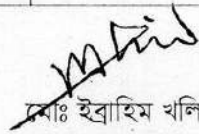 মোঃ ইব্রাহিম খলি